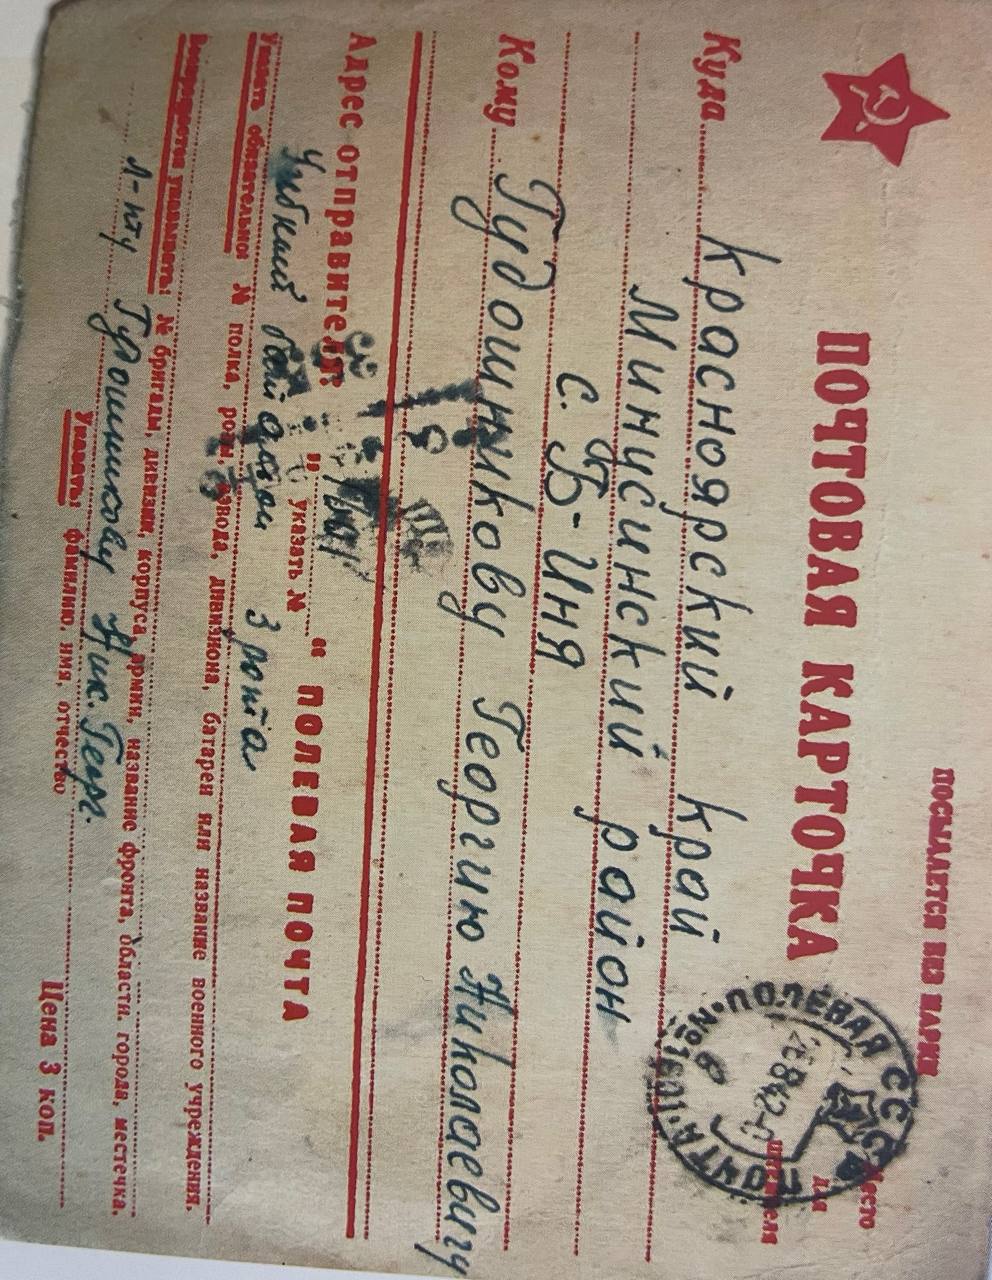 ПОСЫЛАЕТСЯ БЕЗ МАРКИ
ПОЧТОВАЯ КАРТОЧКА
Место
для
штемпеля
ПОЛЕВАЯ ПОЧТА
СССР
Куда Красноярский край
Минусинский район
с. Б-Иня
Кому Гудошникову Георгию Николаевичу
Адрес отправителя:
„ указать № “ ПОЛЕВАЯ ПОЧТА
Учебный 3 рота
Указать обязательно: № полка, роты, взвода, дивизиона, батареи или название военного учреждения.
Воспрещается указывать: № бригады, дивизии, корпуса, армии, название фронта, области, города, местечка.
Л-нту Гудошникову Ник. Георг.
Указать: фамилию, имя, отчество
Цена 3 коп.